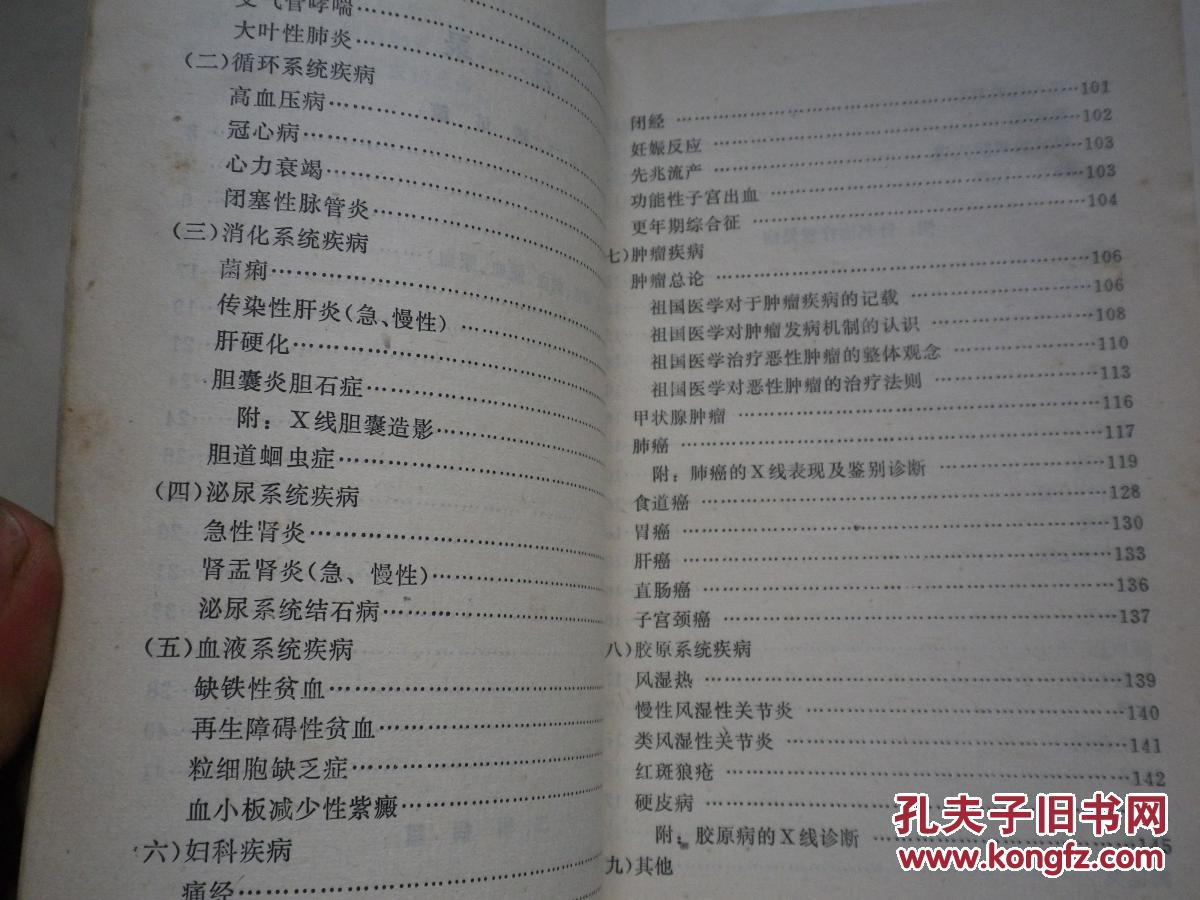 支气管哮喘
大叶性肺炎
(二)循环系统疾病
高血压病
冠心病
心力衰竭
闭塞性脉管炎
(三)消化系统疾病
菌痢
传染性肝炎(急、慢性)
肝硬化
胆囊炎胆石症
附：X线胆囊造影
胆道蛔虫症
(四)泌尿系统疾病
急性肾炎
肾盂肾炎(急、慢性)
泌尿系统结石病
(五)血液系统疾病
缺铁性贫血
再生障碍性贫血
粒细胞缺乏症
血小板减少性紫癜
六)妇科疾病
痛经
闭经……101
妊娠反应……102
先兆流产……103
功能性子宫出血……103
更年期综合征……104
七)肿瘤疾病
肿瘤总论……106
祖国医学对于肿瘤疾病的记载……106
祖国医学对肿瘤发病机制的认识……108
祖国医学治疗恶性肿瘤的整体观念……110
祖国医学对恶性肿瘤的治疗法则……113
甲状腺肿瘤……116
肺癌……117
附：肺癌的X线表现及鉴别诊断……119
食道癌……128
胃癌……130
肝癌……133
直肠癌……136
子宫颈癌……137
八)胶原系统疾病
风湿热……139
慢性风湿性关节炎……140
类风湿性关节炎……141
红斑狼疮……142
硬皮病
附：胶原病的X线诊断……145
九)其他
孔夫子旧书网
www.kongfz.com